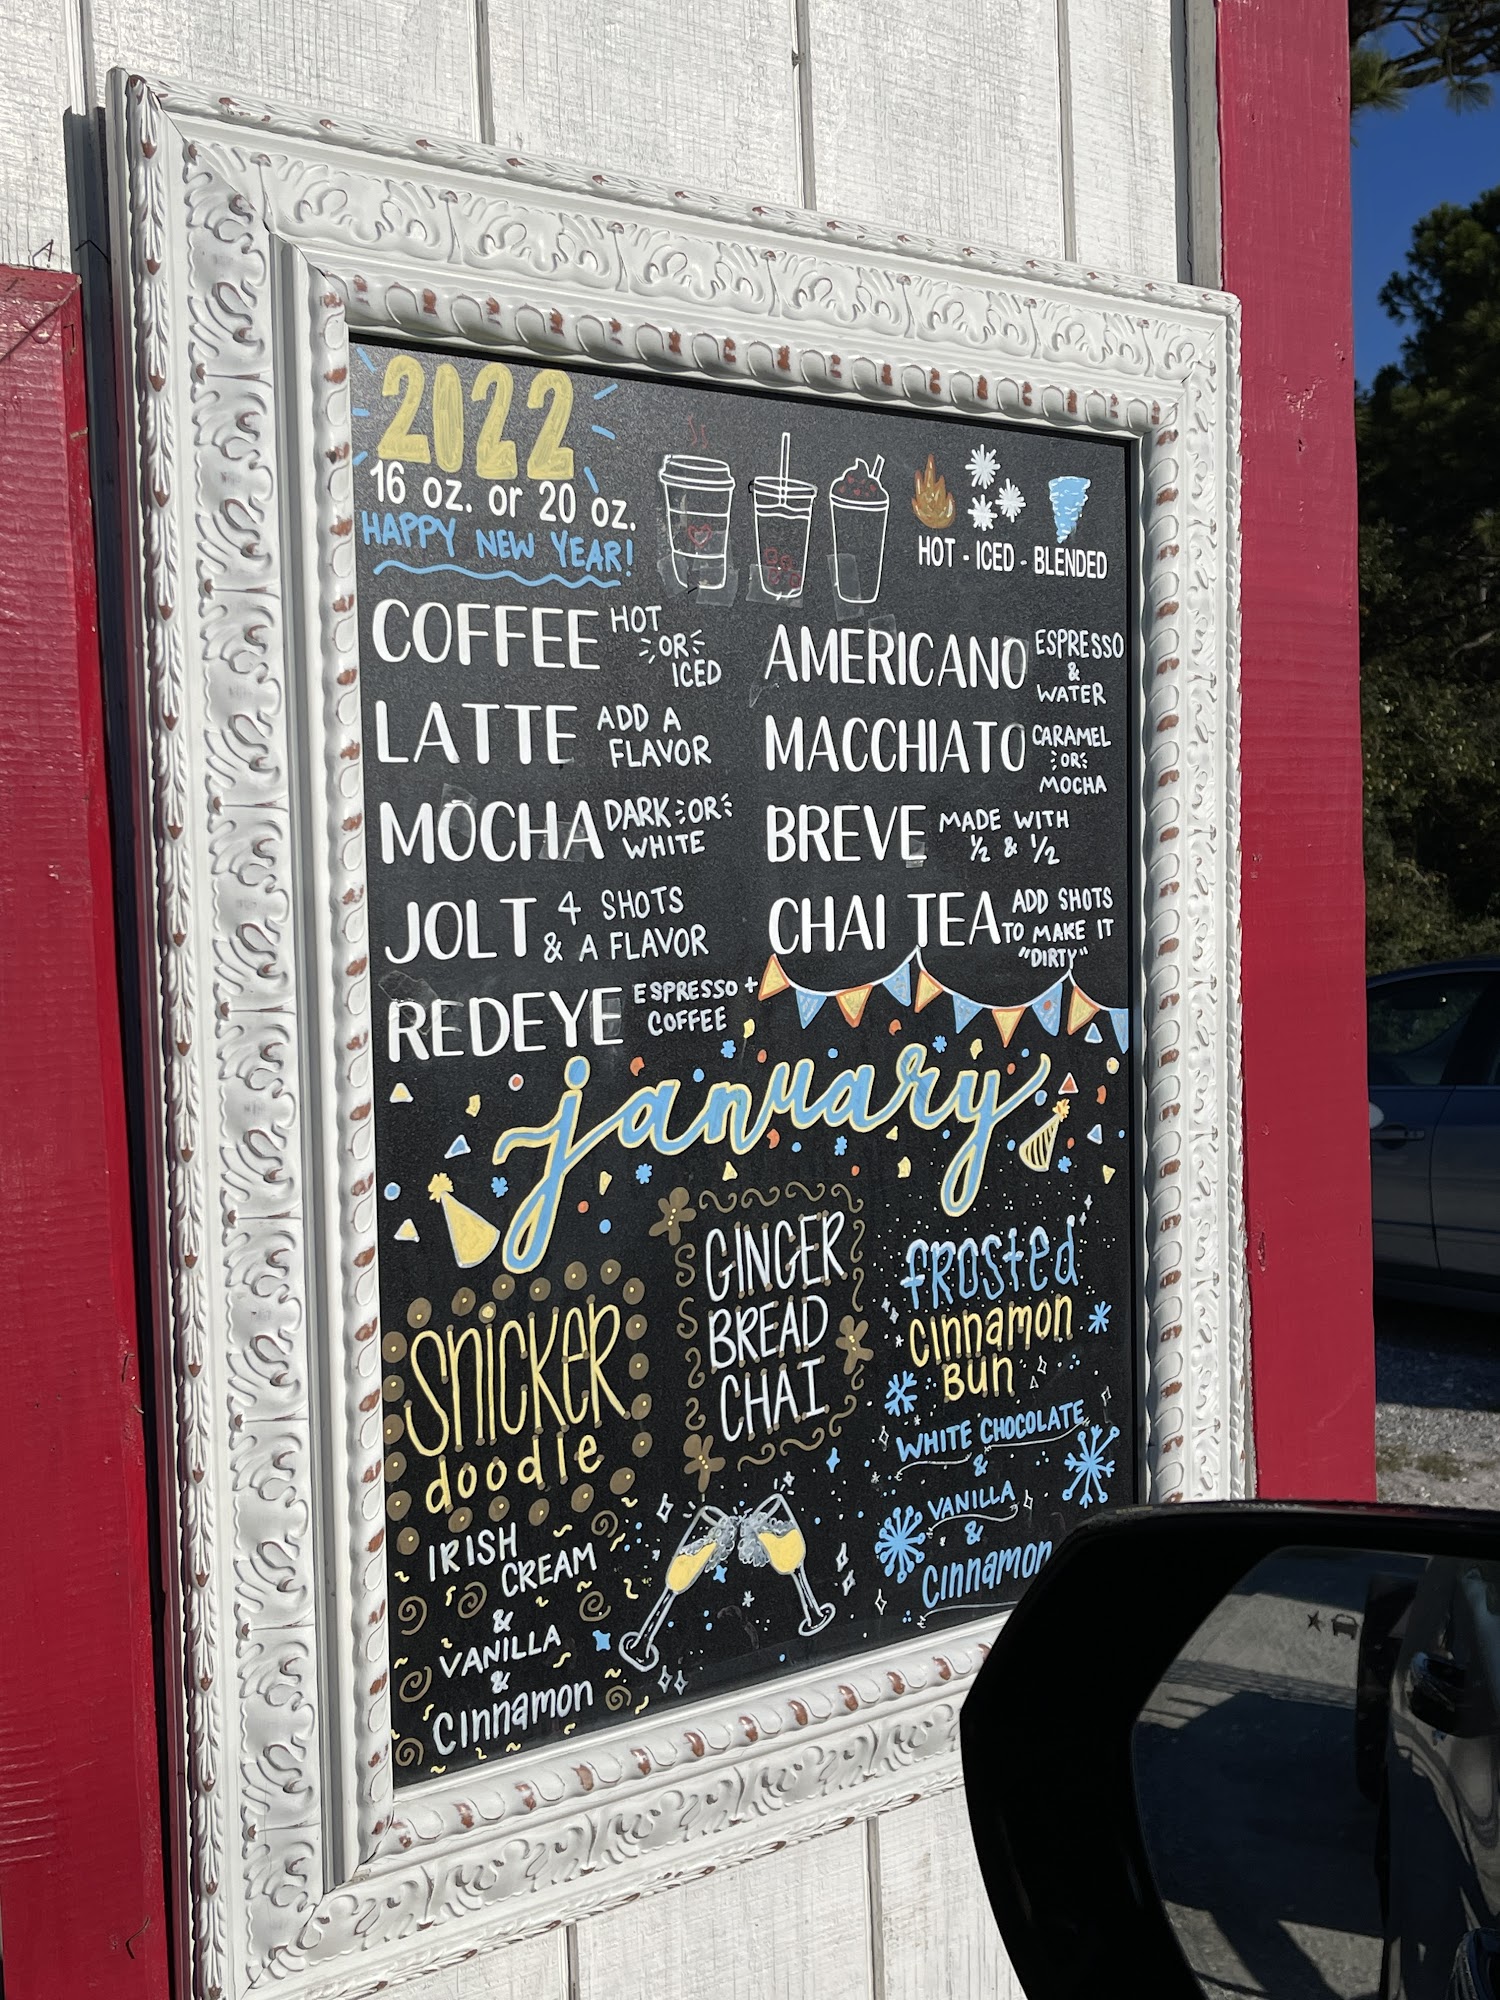 2022
16 oz. or 20 oz.
HAPPY NEW YEAR!
HOT - ICED - BLENDED
COFFEE HOT
OR
ICED
LATTE ADD A
FLAVOR
MOCHA DARK OR
WHITE
JOLT 4 SHOTS
& A FLAVOR
REDEYE ESPRESSO +
COFFEE
AMERICANO ESPRESSO
&
WATER
MACCHIATO CARAMEL
OR
MOCHA
BREVE MADE WITH
½ & ½
CHAI TEA ADD SHOTS
TO MAKE IT
"DIRTY"
january
SNICKER
doodle
IRISH
CREAM
&
VANILLA
&
Cinnamon
GINGER
BREAD
CHAI
FROSTED
Cinnamon
BUN
WHITE CHOCOLATE
&
VANILLA
&
Cinnamon